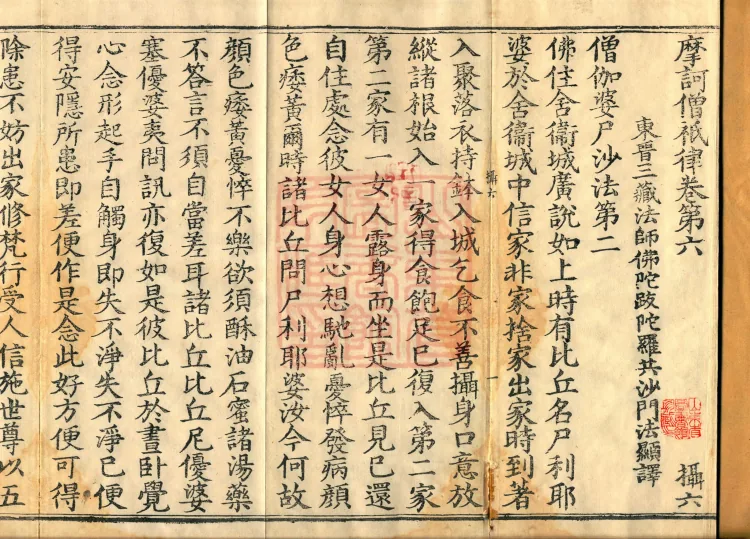 摩訶僧祇律卷第六 攝六
東晉三藏法師佛陀跋陀羅共沙門法顯譯
僧伽婆尸沙法第二
佛住舍衞城廣說如上時有比丘名尸利耶
婆於舍衞城中信家非家捨家出家時到著
攝六
入聚落衣持鉢入城乞食不善攝身口意放
縱諸根始入一家得食飽足已復入第二家
第二家有一女人露身而坐是比丘見已還
自住處念彼女人身心想馳亂憂悴發病顏
色痿黃爾時諸比丘問尸利耶婆汝今何故
顏色痿黃憂悴不樂欲須酥油石蜜諸湯藥
不答言不須自當差耳諸比丘比丘尼優婆
塞優婆夷問訊亦復如是彼比丘於晝卧覺
心念形起手自觸身即失不淨失不淨已便
得安隱所患即差便作是念此好方便可得
除患不妨出家修梵行受人信施世尊以五